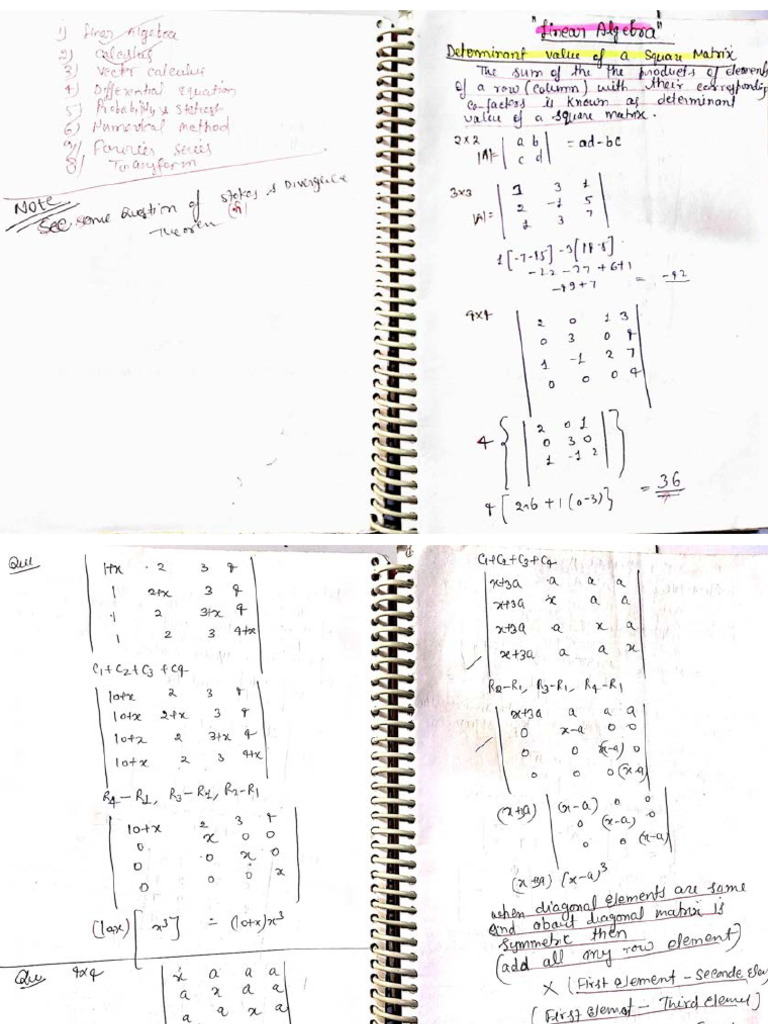 1) linear Algebra
2) Calculus
3) Vector calculus
4) Differential Equation
5) Probability & Statistics
6) Numerical Method
7) Fourier Series
8) Transform
Note
See some Question of Stokes & Divergence
Theorem
"Linear Algebra"
Determinant value of a Square Matrix
The sum of the the products of elements
of a row (column) with their correspondin
co-factors is known as determinant
value of a square matrix.
2×2
|A| = | a b | = ad-bc
| c d |
3×3
| 1 3 1 |
|A| = | 2 -1 5 |
| 1 3 7 |
1[-7-15] -3[14-5]
-22 -27 +6+1
-49+7 = -42
4×4
| 2 0 1 3 |
| 0 3 0 4 |
| 1 -1 2 7 |
| 0 0 0 4 |
4 { | 2 0 1 | }
| 0 3 0 |
| 1 -1 2 |
4 [2×6 + 1(0-3)} = 36
Que
| 1+x 2 3 4 |
| 1 2+x 3 4 |
| 1 2 3+x 4 |
| 1 2 3 4+x |
C1+C2+C3+C4
| 10+x 2 3 4 |
| 10+x 2+x 3 4 |
| 10+x 2 3+x 4 |
| 10+x 2 3 4+x |
R4-R1, R3-R1, R2-R1
| 10+x 2 3 4 |
| 0 x 0 0 |
| 0 0 x 0 |
| 0 0 0 x |
(10+x) [x³] = (10+x)x³
Que 4×4
| x a a a |
| a x a a |
| a a x a |
C1+C2+C3+C4
| x+3a a a a |
| x+3a x a a |
| x+3a a x a |
| x+3a a a x |
R2-R1, R3-R1, R4-R1
| x+3a a a a |
| 0 x-a 0 0 |
| 0 0 (x-a) 0 |
| 0 0 0 (x-a) |
(x+3a) | (x-a) 0 0 |
| 0 (x-a) 0 |
| 0 0 (x-a) |
(x+3a) (x-a)³
when diagonal elements are same
and about diagonal matrix is
symmetric then
(add all any row element)
× (First element - Seconde Ele
(First elemet - Third elemet)